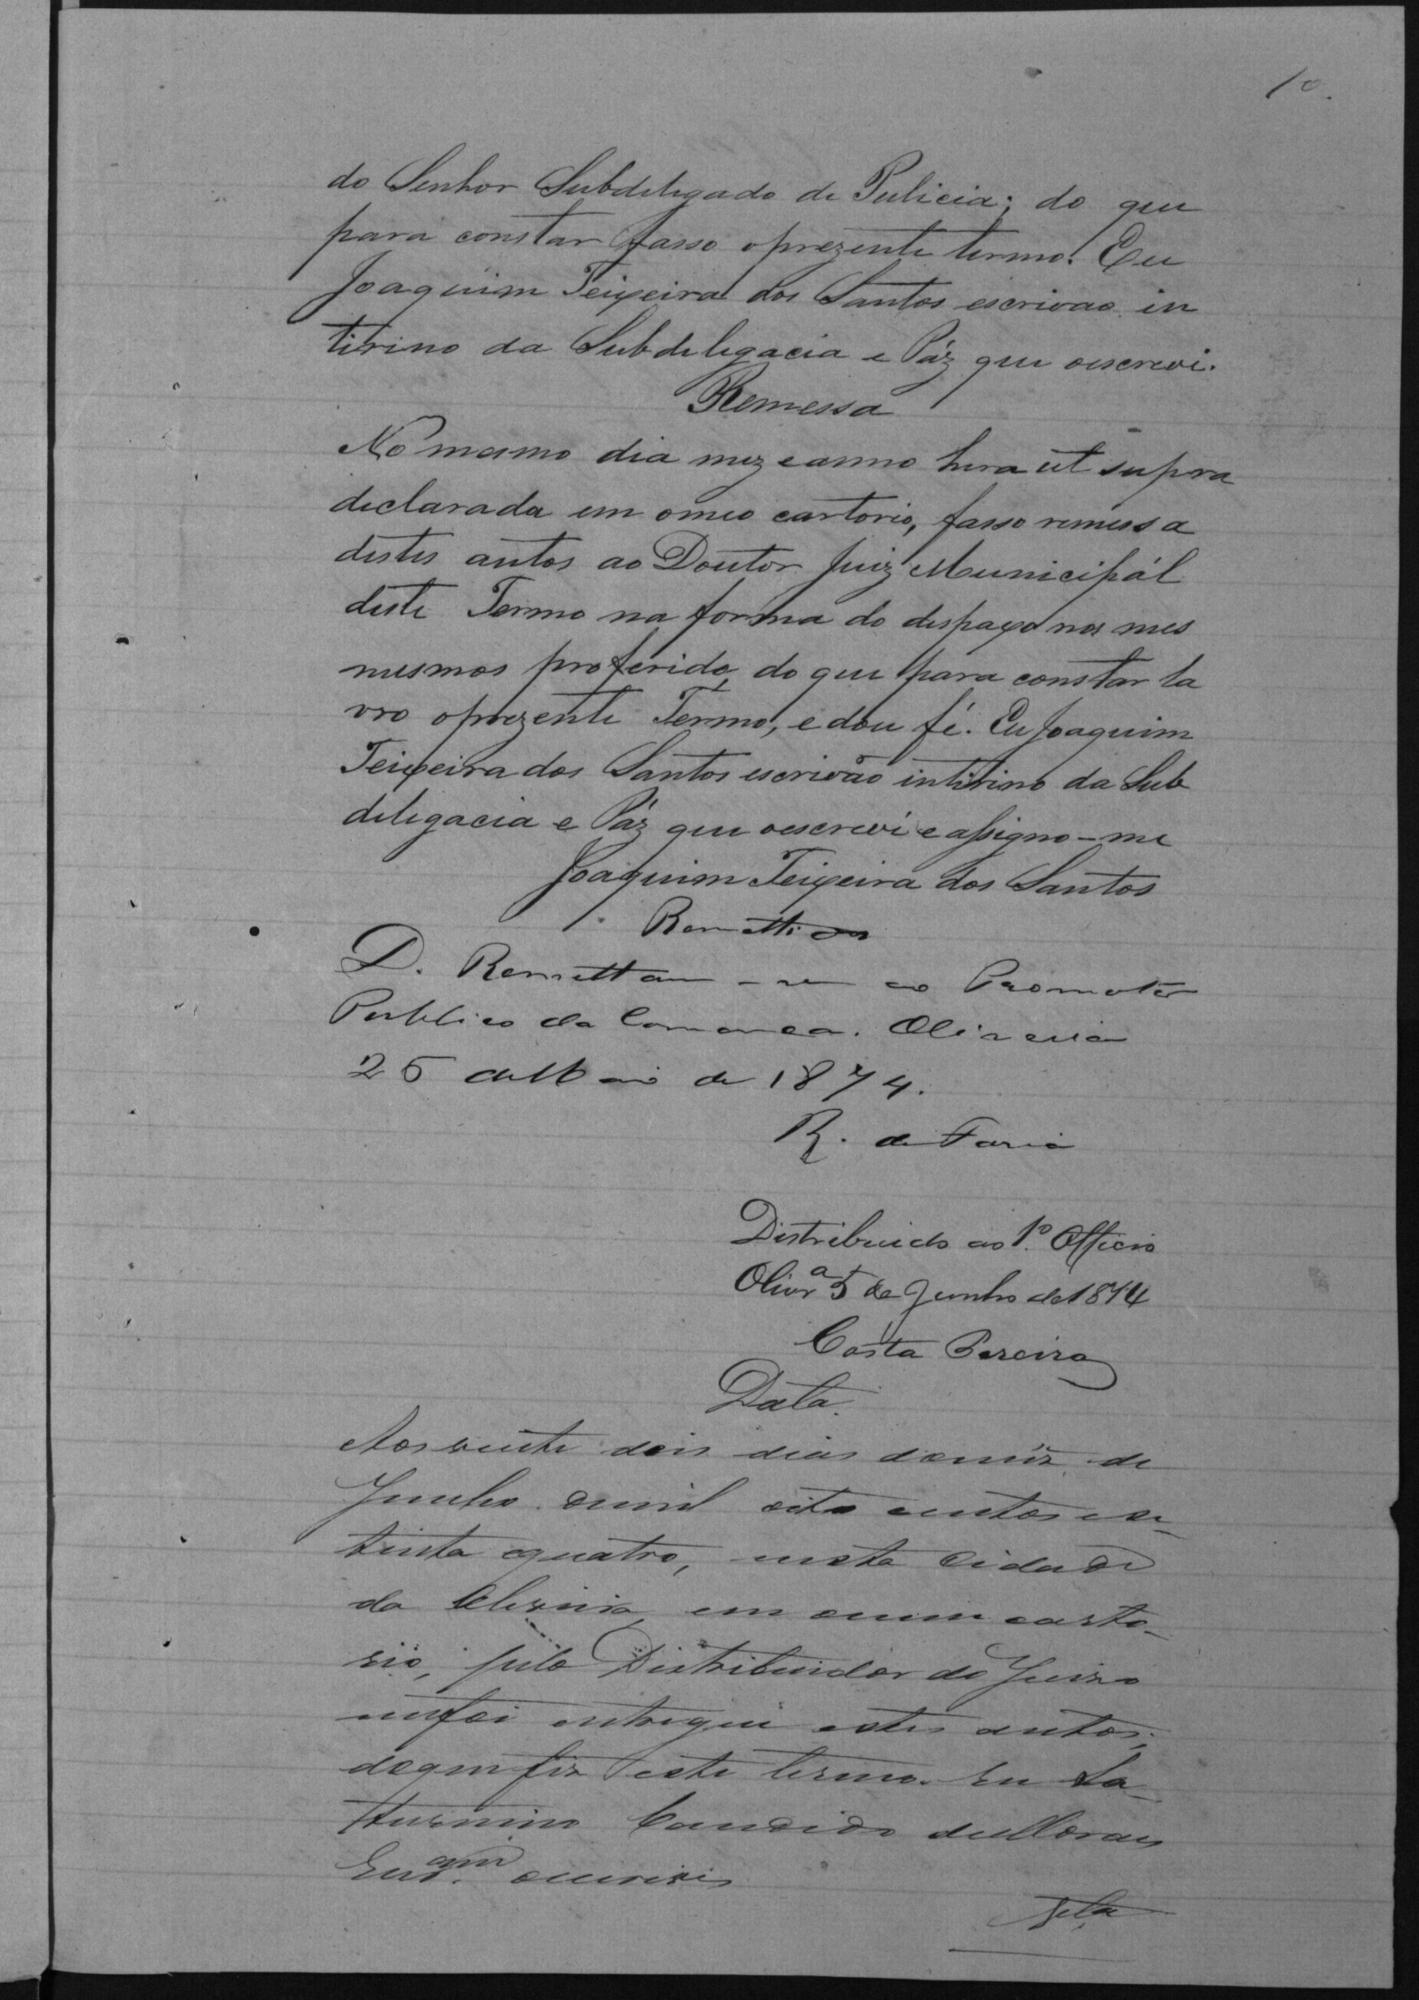 10.
do Senhor Subdelegado de Pulicia; do que
para constar fasso oprezente termo. Eu
Joaquim Teixeira dos Santos escrivao in
tirino da Subdelegacia e Páz que oescrevi.
Remessa
No mesmo dia mez eanno hora ut supra
declarada em omeo cartorio, fasso remessa
destes autos ao Doutor Juiz Municipál
deste Termo na forma do despaxo nos mes
mesmos proferido, do que para constar la
vro oprezente Termo, e dou fé. Eu Joaquim
Teixeira dos Santos escrivão intirino da Sub
delegacia e Páz que oescrevi e assigno-me
Joaquim Teixeira dos Santos
Remettidos
D. Remettam-se ao Promotor
Publico da Comarca. Oliveira
25 de Maio de 1874.
R. de Faria
Distribuido ao 1º Officio
Olivrª 5 de Junho de 1874
Costa Pereira
Data.
Aos vinte dois dias domez de
Junho demil oito centos e se-
tenta equatro, nesta Cidade
da Oliveira, em omeu carto-
rio, pelo Distribuidor do Juizo
mefoi entregue estes autos;
doque fiz este termo. Eu Sa-
turnino Candido de Moraes
oescrevi